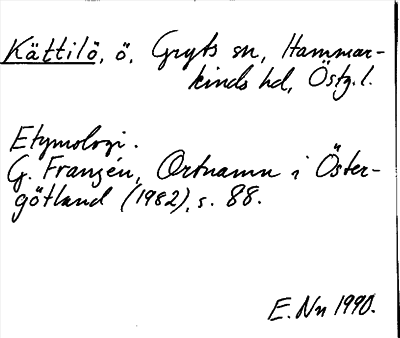 Kättilö, ö, Gryts sn, Hammar-
kinds hd, Östg. l.
Etymologi.
G. Franzén, Ortnamn i Öster-
götland (1982), s. 88.
E. Nn 1990.